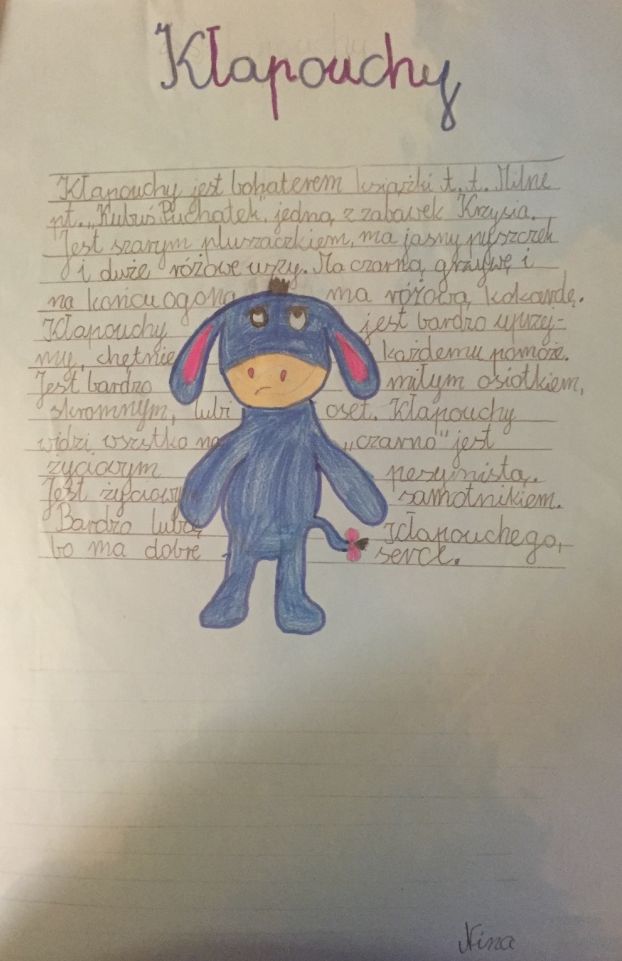 Kłapouchy
Kłapouchy jest bohaterem książki A. A. Milne
pt. „Kubuś Puchatek", jedną z zabawek Krzysia.
Jest szarym pluszaczkiem, ma jasny pyszczek
i duże różowe uszy. Ma czarną grzywę i
na końcu ogona ma różową kokardę.
Kłapouchy jest bardzo uprzej-
my, chętnie każdemu pomoże.
Jest bardzo miłym osiołkiem,
skromnym, lubi oset. Kłapouchy
widzi wszstko na „czarno" jest
życiowym pesymistą.
Jest życiowym samotnikiem.
Bardzo lubię Kłapouchego,
bo ma dobre serce.
Nina